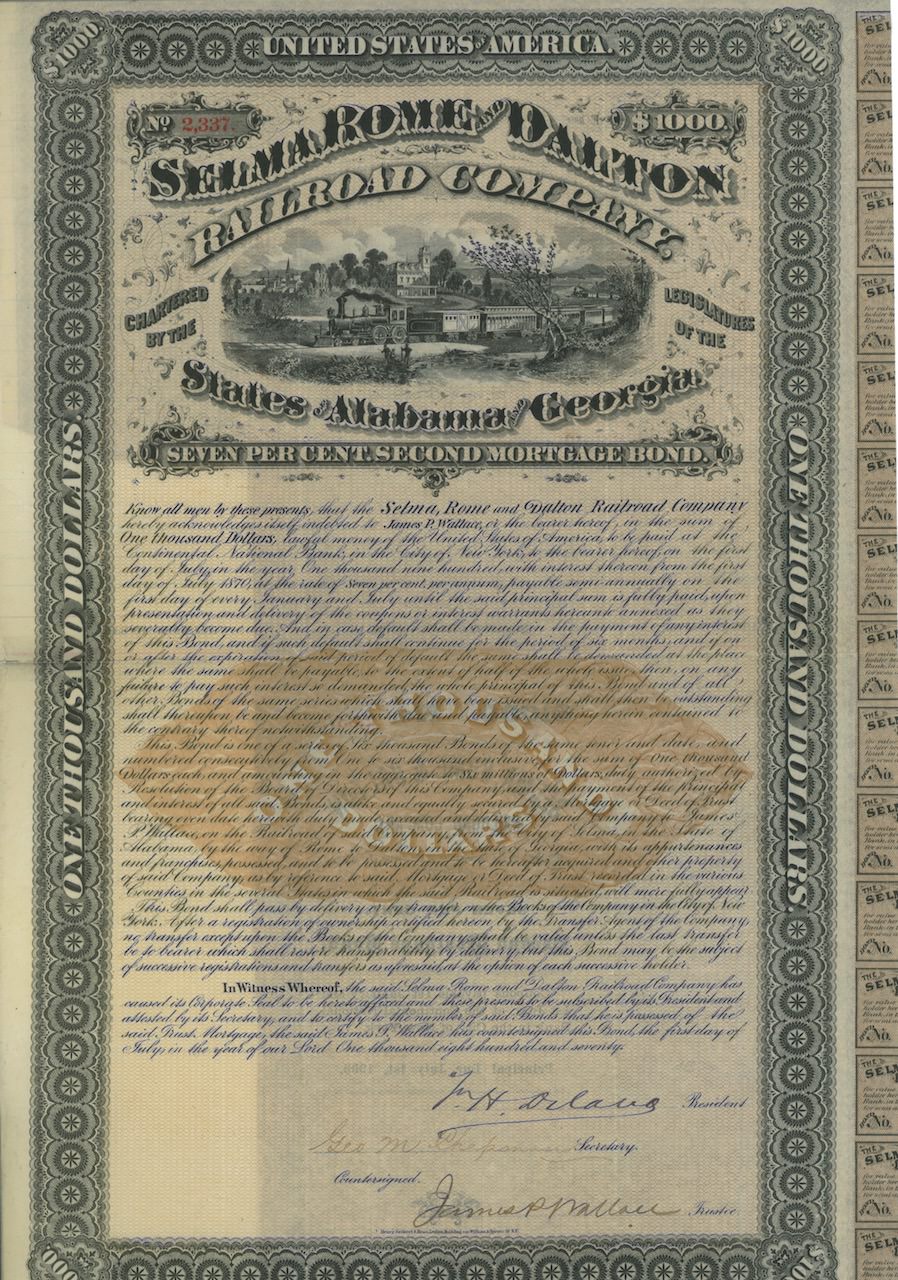 $1000
UNITED STATES OF AMERICA.
$1000
No 2,337.
$1000.
SELMA, ROME AND DALTON
RAILROAD COMPANY.
CHARTERED BY THE
LEGISLATURES OF THE
States of Alabama and Georgia.
SEVEN PER CENT. SECOND MORTGAGE BOND.
ONE THOUSAND DOLLARS.
ONE THOUSAND DOLLARS.
Know all men by these presents, that the Selma, Rome and Dalton Railroad Company
hereby acknowledges itself indebted to James P. Wallace, or the bearer hereof, in the sum of
One thousand Dollars, lawful money of the United States of America, to be paid at the
Continental National Bank, in the City of New York, to the bearer hereof, on the first
day of July, in the year One thousand nine hundred, with interest thereon from the first
day of July 1870, at the rate of Seven per cent. per annum, payable semi-annually on the
first day of every January and July until the said principal sum is fully paid, upon
presentation and delivery of the coupons or interest warrants hereunto annexed as they
severally become due. And in case default shall be made in the payment of any interest
of this Bond, and if such default shall continue for the period of six months, and if on
or after the expiration of said period of default the same shall be demanded at the place
where the same shall be payable, to the extent of half of the whole issue, then, on any
failure to pay such interest so demanded, the whole principal of this Bond and of all
other Bonds of the same series which shall have been issued and shall then be outstanding
shall thereupon be and become forthwith due and payable, anything herein contained to
the contrary thereof notwithstanding.
This Bond is one of a series of Six thousand Bonds of the same tenor and date, and
numbered consecutively from one to six thousand inclusive, for the sum of One thousand
Dollars each, and amounting in the aggregate to Six millions of Dollars, duly authorized by
Resolution of the Board of Directors of this Company, and the payment of the principal
and interest of all said Bonds, is alike and equally secured by a Mortgage or Deed of Trust
bearing even date herewith, duly executed and made by said Company to James
P. Wallace, on the Railroad of said Company from the City of Selma in the State of
Alabama, by the way of Rome to Dalton in the State of Georgia, with its appurtenances
and franchises, possessed, and to be possessed and to be hereafter acquired and other property
of said Company, as by reference to said Mortgage or Deed of Trust recorded in the various
Counties in the several States in which the said Railroad is situated, will more fully appear.
This Bond shall pass by delivery or by transfer on the Books of the Company in the City of New
York. After a registration of ownership certified hereon by the Transfer Agent of the Company,
no transfer except upon the Books of the Company, shall be valid unless the last transfer
be to bearer which shall restore transferability by delivery, but this Bond may be the subject
of successive registrations and transfers as aforesaid, at the option of each successive holder.
In Witness Whereof, the said Selma Rome and Dalton Railroad Company has
caused its Corporate Seal to be hereto affixed and these presents to be subscribed by its President and
attested by its Secretary, and to certify to the number of said Bonds that he is possessed of the
said Trust Mortgage, the said James P. Wallace has countersigned this Bond, the first day of
July, in the year of our Lord One thousand eight hundred and seventy.
ONE THOUSAND
DOLLARS
President
Geo M. Chapman Secretary.
Countersigned.
James P Wallace Trustee.